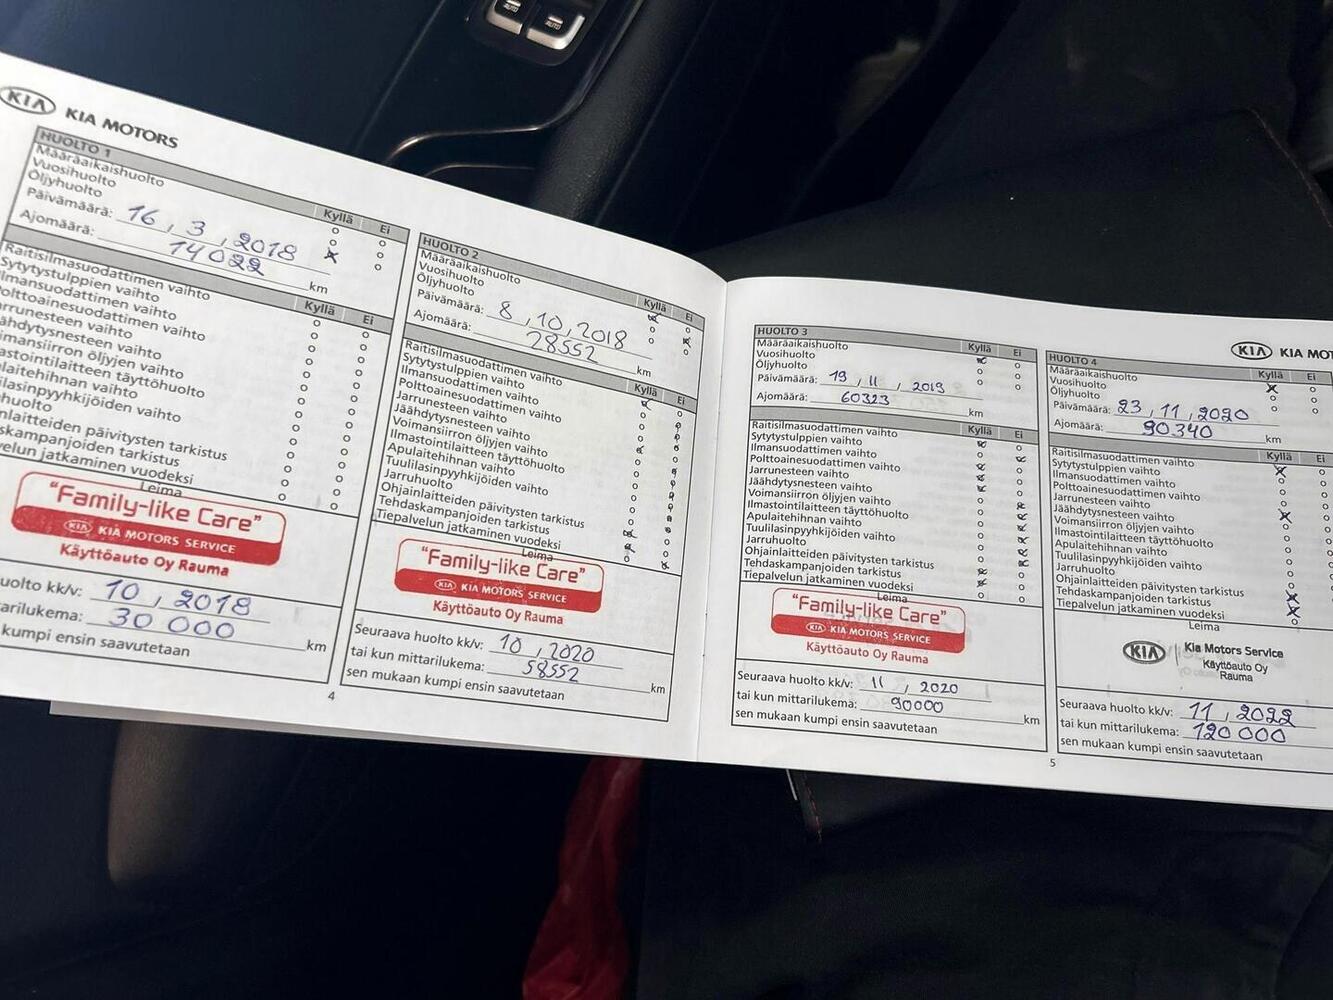 AUTO
AUTO
KIA
KIA MOTORS
HUOLTO 1
Kyllä
Ei
Määräaikaishuolto
Vuosihuolto
Öljyhuolto
Päivämäärä: 16, 3, 2018
Ajomäärä: 14022 km
Kyllä
Ei
Raitisilmasuodattimen vaihto
Sytytystulppien vaihto
lmansuodattimen vaihto
olttoainesuodattimen vaihto
arrunesteen vaihto
ähdytysnesteen vaihto
imansiirron öljyjen vaihto
astointilaitteen täyttöhuolto
ulaitehihnan vaihto
ilasinpyyhkijöiden vaihto
huolto
nlaitteiden päivitysten tarkistus
skampanjoiden tarkistus
velun jatkaminen vuodeksi
Leima
"Family-like Care"
KIA KIA MOTORS SERVICE
Käyttöauto Oy Rauma
uolto kk/v: 10, 2018
tarilukema: 30 000 km
kumpi ensin saavutetaan
4
HUOLTO 2
Kyllä
Ei
Määräaikaishuolto
Vuosihuolto
Öljyhuolto
Päivämäärä: 8, 10, 2018
Ajomäärä: 28552 km
Kyllä
Ei
Raitisilmasuodattimen vaihto
Sytytystulppien vaihto
Ilmansuodattimen vaihto
Polttoainesuodattimen vaihto
Jarrunesteen vaihto
Jäähdytysnesteen vaihto
Voimansiirron öljyjen vaihto
Ilmastointilaitteen täyttöhuolto
Apulaitehihnan vaihto
Tuulilasinpyyhkijöiden vaihto
Jarruhuolto
Ohjainlaitteiden päivitysten tarkistus
Tehdaskampanjoiden tarkistus
Tiepalvelun jatkaminen vuodeksi
Leima
"Family-like Care"
KIA KIA MOTORS SERVICE
Käyttöauto Oy Rauma
Seuraava huolto kk/v: 10, 2020
tai kun mittarilukema: 58552 km
sen mukaan kumpi ensin saavutetaan
HUOLTO 3
Kyllä
Ei
Määräaikaishuolto
Vuosihuolto
Öljyhuolto
Päivämäärä: 19, 11, 2019
Ajomäärä: 60323 km
Kyllä
Ei
Raitisilmasuodattimen vaihto
Sytytystulppien vaihto
Ilmansuodattimen vaihto
Polttoainesuodattimen vaihto
Jarrunesteen vaihto
Jäähdytysnesteen vaihto
Voimansiirron öljyjen vaihto
Ilmastointilaitteen täyttöhuolto
Apulaitehihnan vaihto
Tuulilasinpyyhkijöiden vaihto
Jarruhuolto
Ohjainlaitteiden päivitysten tarkistus
Tehdaskampanjoiden tarkistus
Tiepalvelun jatkaminen vuodeksi
Leima
"Family-like Care"
KIA KIA MOTORS SERVICE
Käyttöauto Oy Rauma
Seuraava huolto kk/v: 11, 2020
tai kun mittarilukema: 90000 km
sen mukaan kumpi ensin saavutetaan
KIA
KIA MOT
HUOLTO 4
Kyllä
Ei
Määräaikaishuolto
Vuosihuolto
Öljyhuolto
Päivämäärä: 23, 11, 2020
Ajomäärä: 90340 km
Kyllä
Ei
Raitisilmasuodattimen vaihto
Sytytystulppien vaihto
Ilmansuodattimen vaihto
Polttoainesuodattimen vaihto
Jarrunesteen vaihto
Jäähdytysnesteen vaihto
Voimansiirron öljyjen vaihto
Ilmastointilaitteen täyttöhuolto
Apulaitehihnan vaihto
Tuulilasinpyyhkijöiden vaihto
Jarruhuolto
Ohjainlaitteiden päivitysten tarkistus
Tehdaskampanjoiden tarkistus
Tiepalvelun jatkaminen vuodeksi
Leima
KIA
Kia Motors Service
Käyttöauto Oy
Rauma
Seuraava huolto kk/v: 11, 2022
tai kun mittarilukema: 120 000
sen mukaan kumpi ensin saavutetaan
5